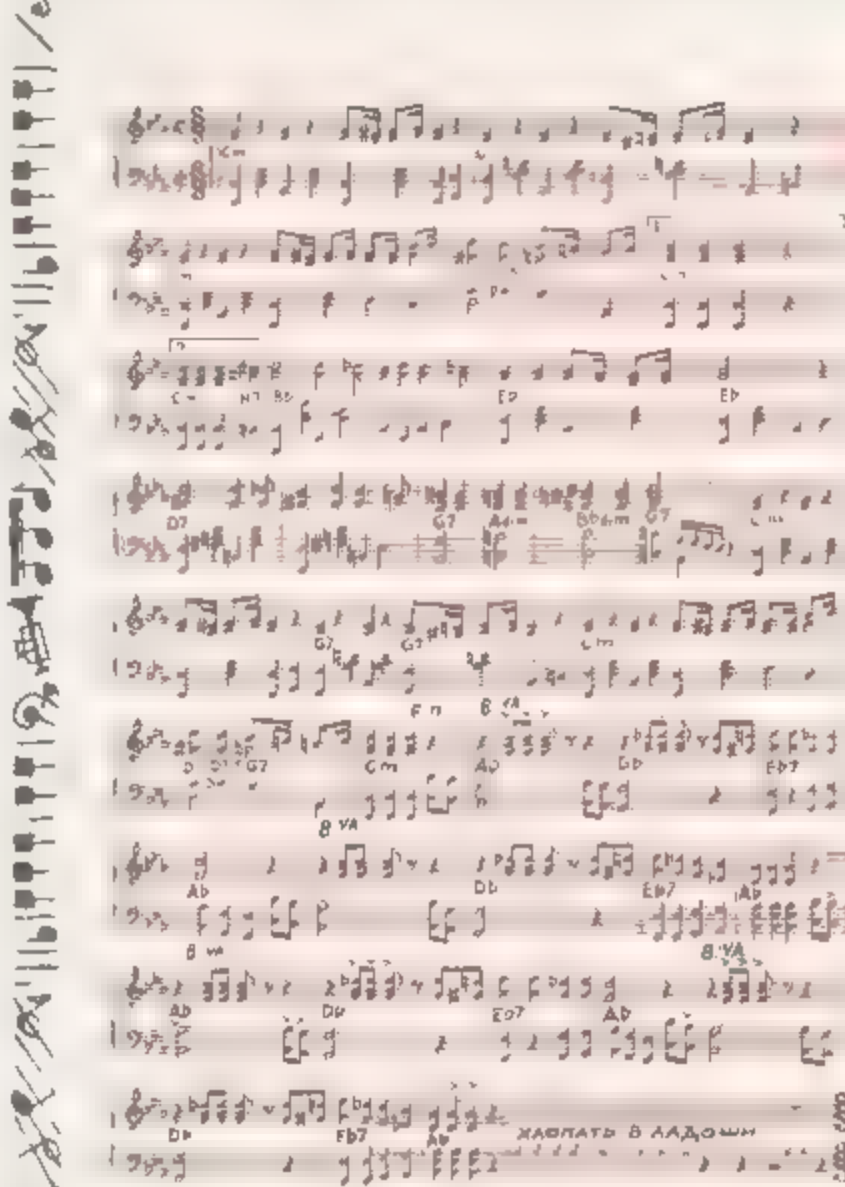 Cm
Cm H7 Bb Eb Eb
D7 G7 G7
G7 G7 Cm
8 VA
G7 Cm Ab Db Eb7
8 VA
Ab Db Eb7 Ab
8 VA 8 VA
Ab Db Eb7 Ab
Db Eb7 Ab ХЛОПАТЬ В ЛАДОШИ